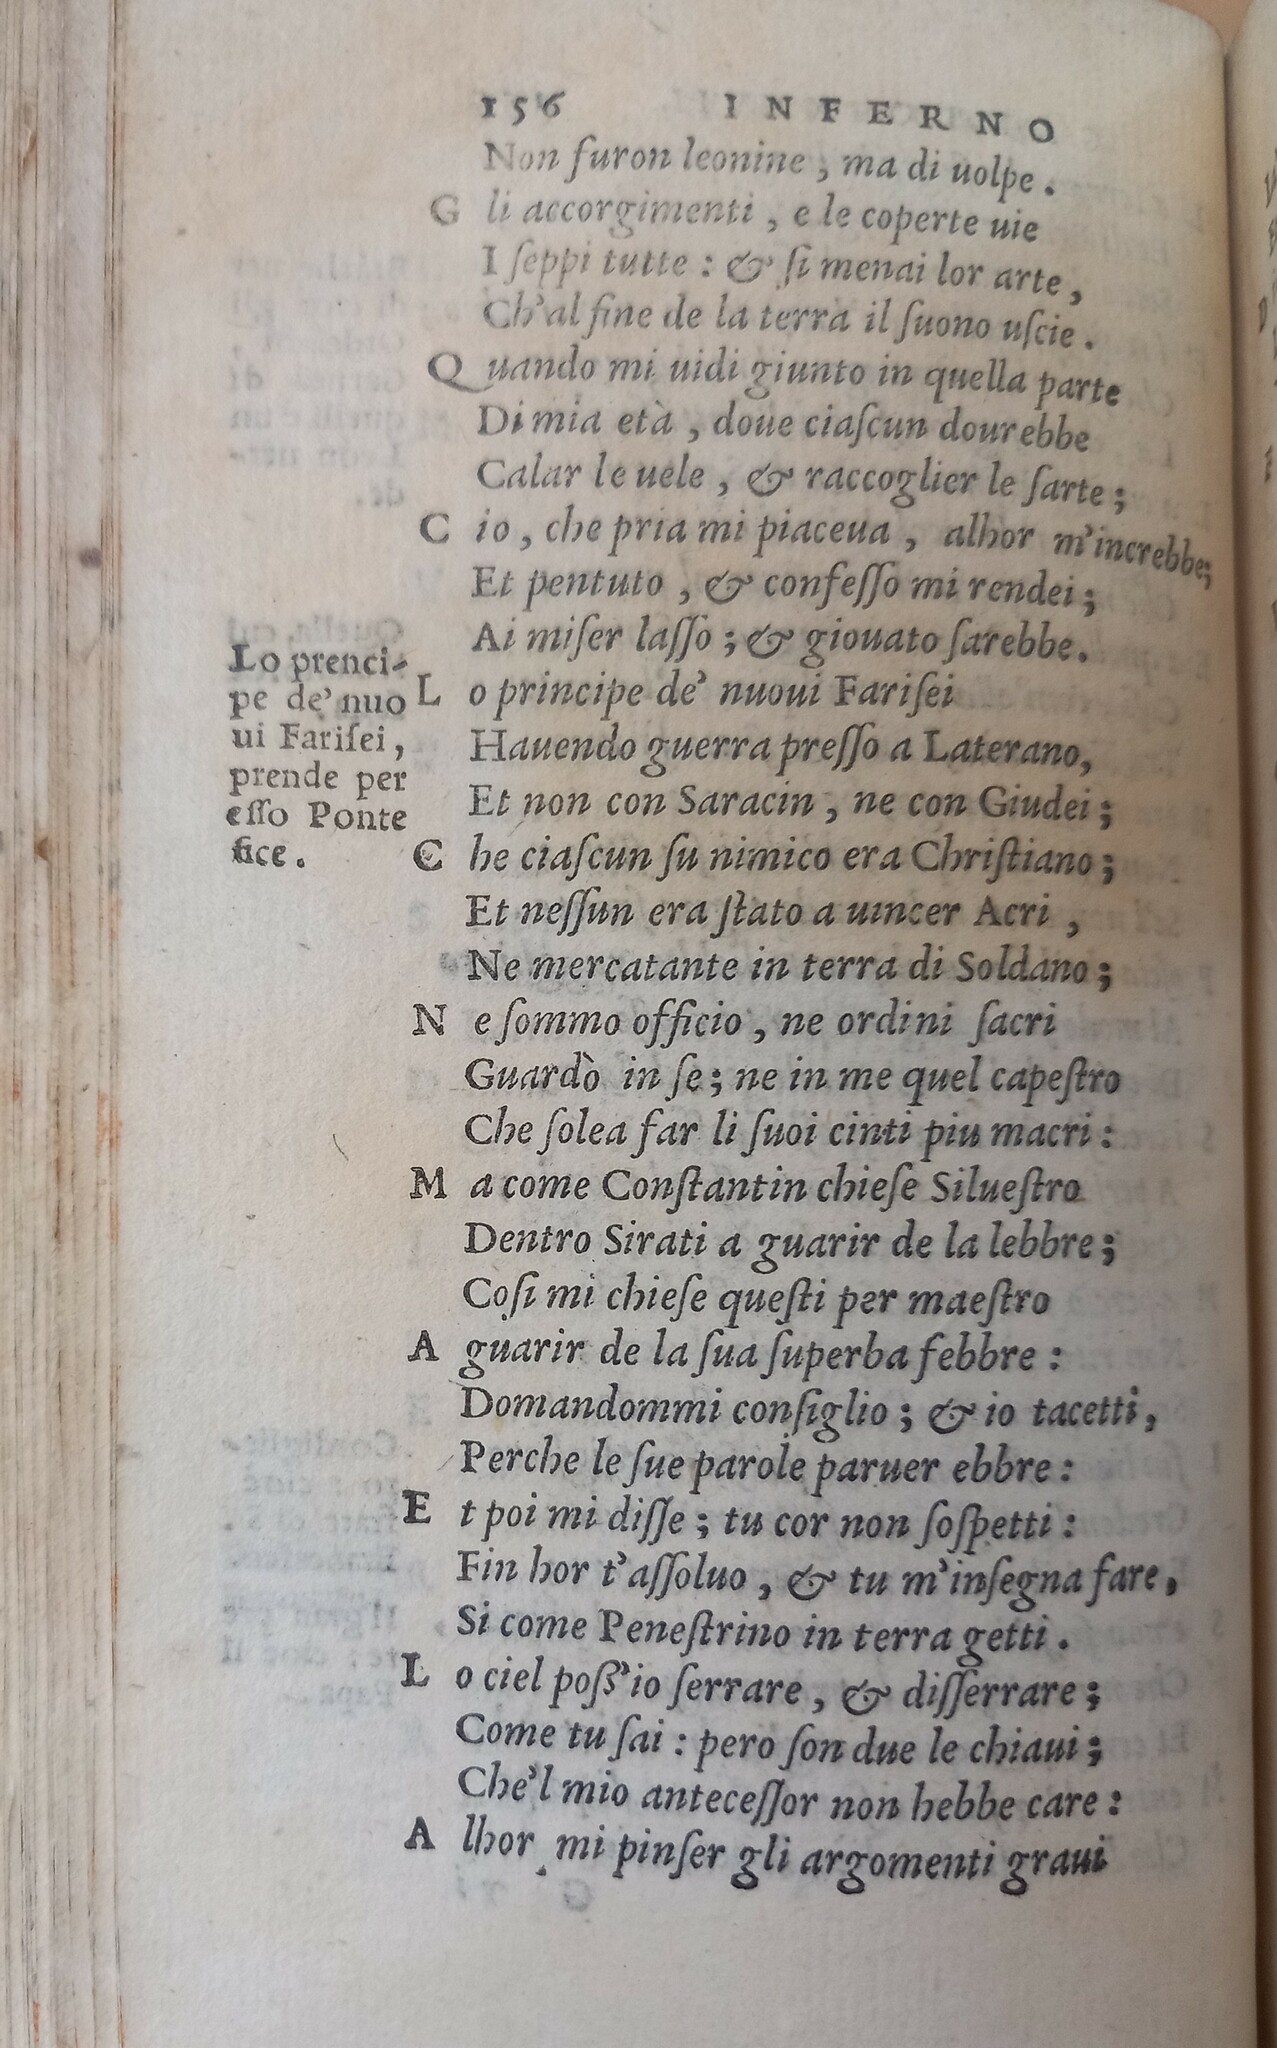 156 INFERNO
Non furon leonine, ma di uolpe.
G li accorgimenti, e le coperte uie
I ſeppi tutte: & ſi menai lor arte,
Ch'al fine de la terra il ſuono uſcie.
Q uando mi uidi giunto in quella parte
Di mia età, doue ciaſcun dourebbe
Calar le uele, & raccoglier le ſarte;
C io, che pria mi piaceua, alhor m'increbbe;
Et pentuto, & confeſſo mi rendei;
Ai miſer laſſo; & giouato ſarebbe.
Lo prenci-
pe de' nuo
ui Fariſei,
prende per
eſſo Ponte
fice.
L o principe de' nuoui Fariſei
Hauendo guerra preſſo a Laterano,
Et non con Saracin, ne con Giudei;
C he ciaſcun ſu nimico era Chriſtiano;
Et neſſun era ſtato a uincer Acri,
Ne mercatante in terra di Soldano;
N e ſommo officio, ne ordini ſacri
Guardò in ſe; ne in me quel capeſtro
Che ſolea far li ſuoi cinti piu macri:
M a come Conſtantin chieſe Silueſtro
Dentro Sirati a guarir de la lebbre;
Coſi mi chieſe queſti per maeſtro
A guarir de la ſua ſuperba febbre:
Domandommi conſiglio; & io tacetti,
Perche le ſue parole paruer ebbre:
E t poi mi diſſe; tu cor non ſoſpetti:
Fin hor t'aſſoluo, & tu m'inſegna fare,
Si come Peneſtrino in terra getti.
L o ciel poß'io ſerrare, & diſſerrare;
Come tu ſai: pero ſon due le chiaui;
Che'l mio anteceſſor non hebbe care:
A lhor mi pinſer gli argomenti graui